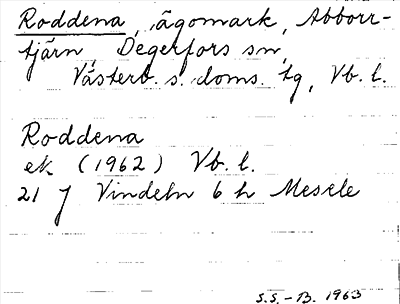 Roddena, ägomark, Abborr-
tjärn, Degerfors sn,
Västerb. s. doms. tg, Vb. l.
Roddena
ek (1962) Vb. l.
21 J Vindeln 6 h Mesele
S.S. - B. 1963